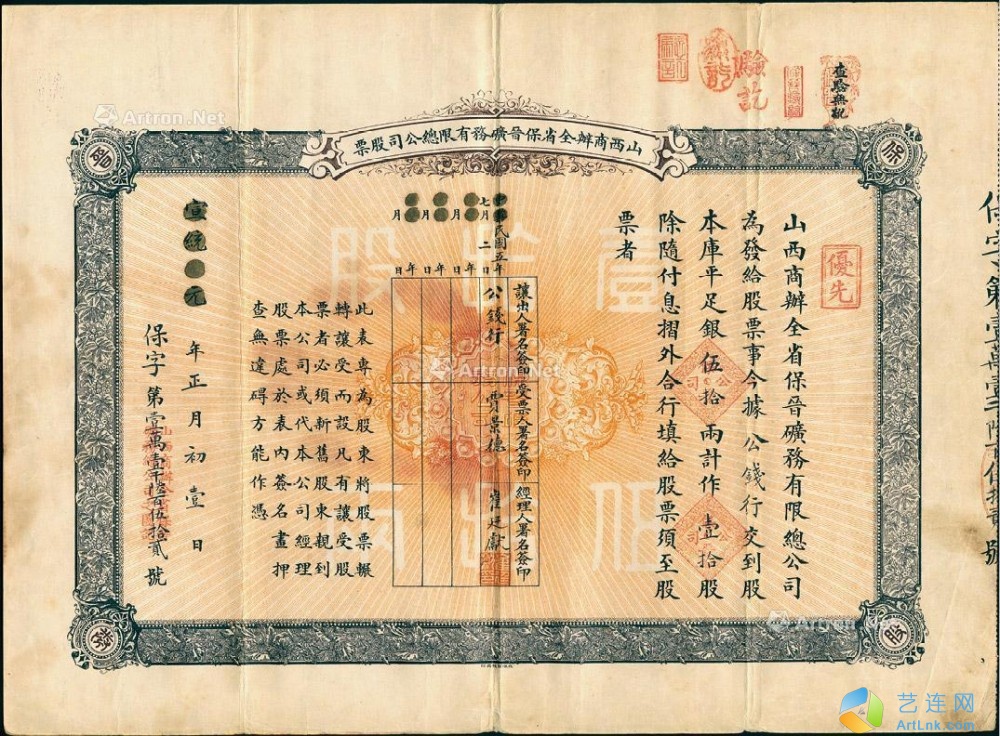 查驗無訛
驗訖
山西商辦全省保晉礦務有限總公司股票
保
晉
股
優先
山西商辦全省保晉礦務有限總公司
為發給股票事今據 公錢行交到股
本庫平足銀伍拾兩計作壹拾股
除隨付息摺外合行填給股票須至股
票者
讓出人署名簽印 受票人署名簽印 經理人署名簽印
民國五年七月二日
公錢行 賈景德 崔廷獻
年 月 日
年 月 日
年 月 日
此表專為股東將股票輾
轉讓受而設凡有讓受股
票者必須新舊股東親到
本公司或代本公司經理
股票處於表內簽名畫押
查無違碍方能作憑
宣統元年正月初壹日
保字第壹萬壹千陸百伍拾貳號
Artron.Net
Artron.Net
Artron.Net
Artron.Net
Artron.Net
艺连网
ArtLnk.com